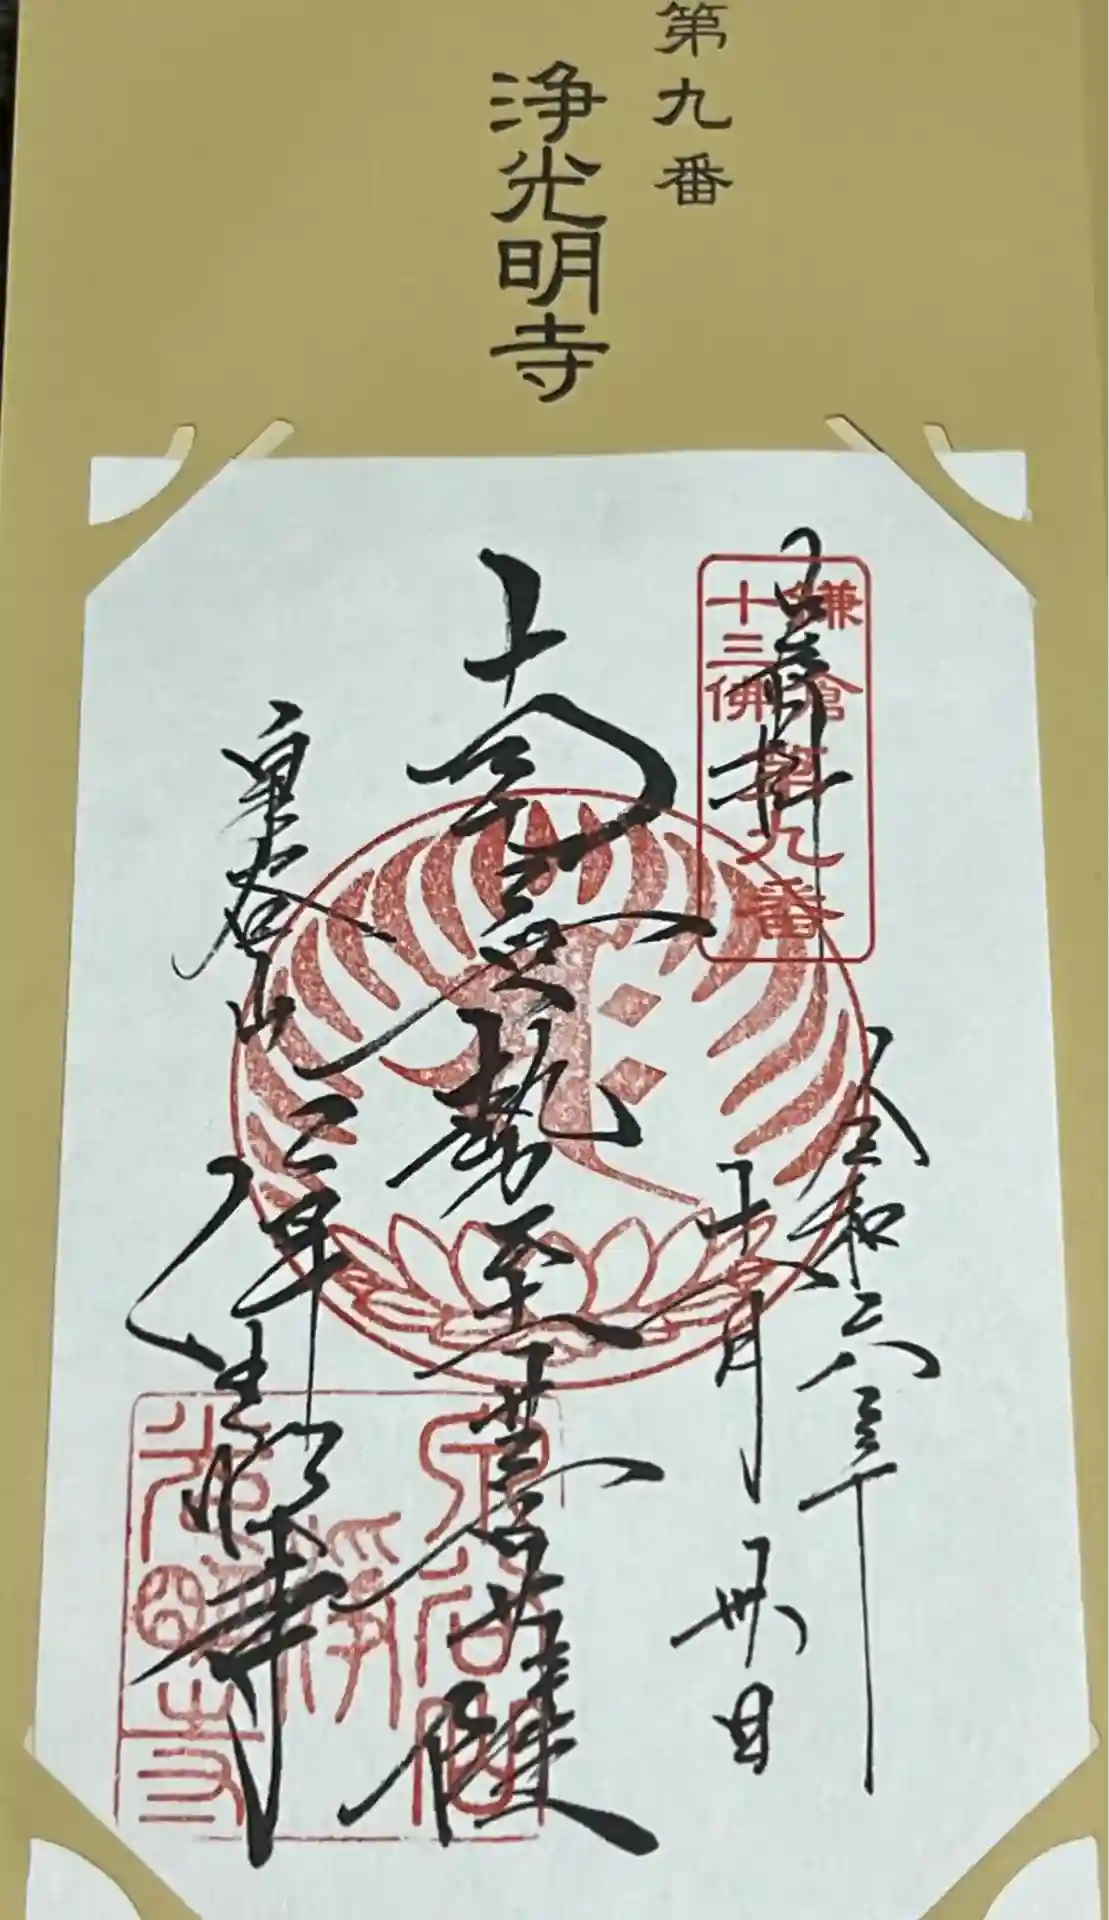 第九番
浄光明寺
鎌倉
十三佛
第九番
奉拝
令和六年
十一月卅日
大勢至菩薩
泉谷山
浄光明寺
泉谷山
浄
光明寺